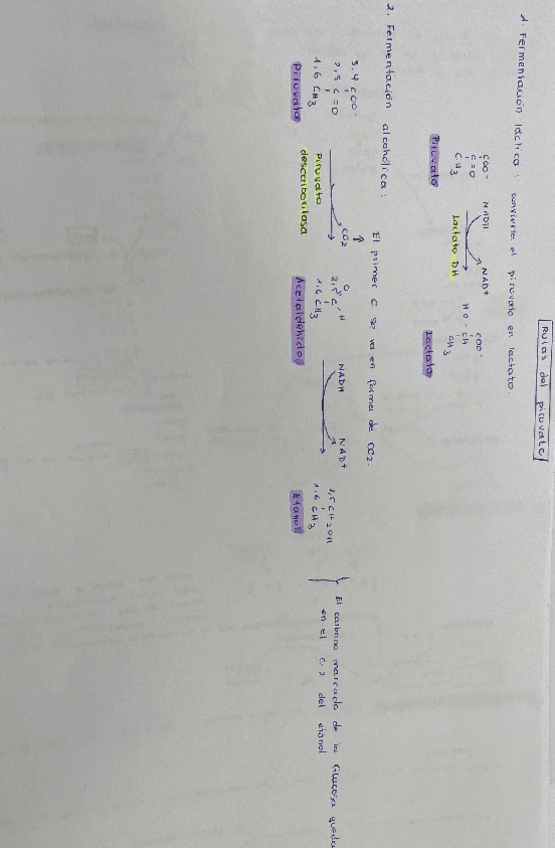 Rutas del piruvato
1. Fermentación láctica : convierte el piruvato en lactato.
COO- NADH NAD+ COO-
C=O HO-CH
CH3 Lactato DH CH3
Piruvato Lactato
2. Fermentación alcohólica :
El primer C se va en forma de CO2.
3,4 COO- CO2 O NADH NAD+
2,5 C=O 2,5 C H 2,5 CH2OH
1,6 CH3 Piruvato 1,6 CH3 1,6 CH3
Piruvato descarboxilasa Acetaldehído Etanol
El carbono marcado de la Glucosa queda
en el C-2 del etanol